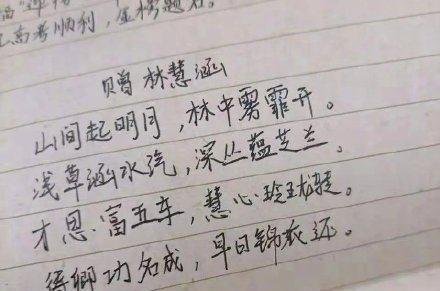 高考顺利，金榜题名。
赠 林慧涵
山间起明月，林中雾霏开。
浅草涵水汽，深丛蕴芝兰。
才思富五车，慧心玲珑。
得乡功名成，早日锦衣还。